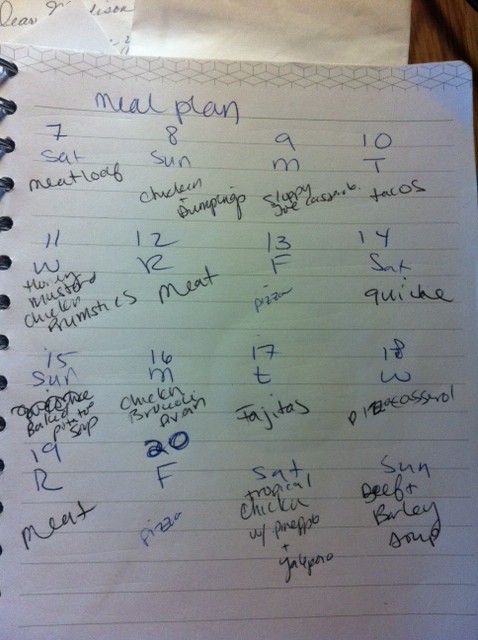 Dear
meal plan
7 8 9 10
Sat Sun m T
meatloaf Chicken + Dumpings Sloppy Joe Casserole tacos
11 12 13 14
W R F Sat
Honey mustard chicken Drumstics meat pizza quiche
15 16 17 18
Sun m t W
Baked potato Sop Chicken Broccoli Fajitas pizzacasserol
19 20
R F Sat Sun
meat pizza tropical Chicken w/ pineapple + Beef + Barley Soup